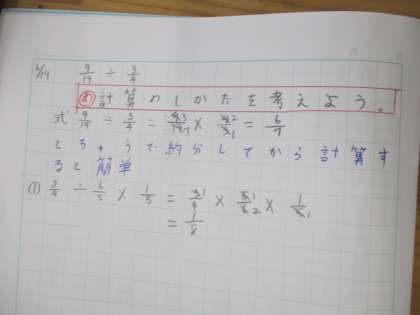 6/14 9/14 ÷ 3/4
め 計算のしかたを考えよう。
式 9/14 ÷ 3/4 = 9 3/14 7 × 4 2/3 1 = 6/7
とちゅうで約分してから計算す
ると簡単
① 3/4 ÷ 6/5 × 1/5 = 3 1/4 × 5 1/6 2 × 1/5 1
= 1/8